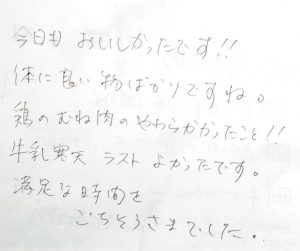 今日も おいしかったです!!
体に良い物ばかりですね。
鶏のむね肉のやわらかかったこと!!
牛乳寒天 ラスト よかったです。
満足な時間を
ごちそうさまでした。